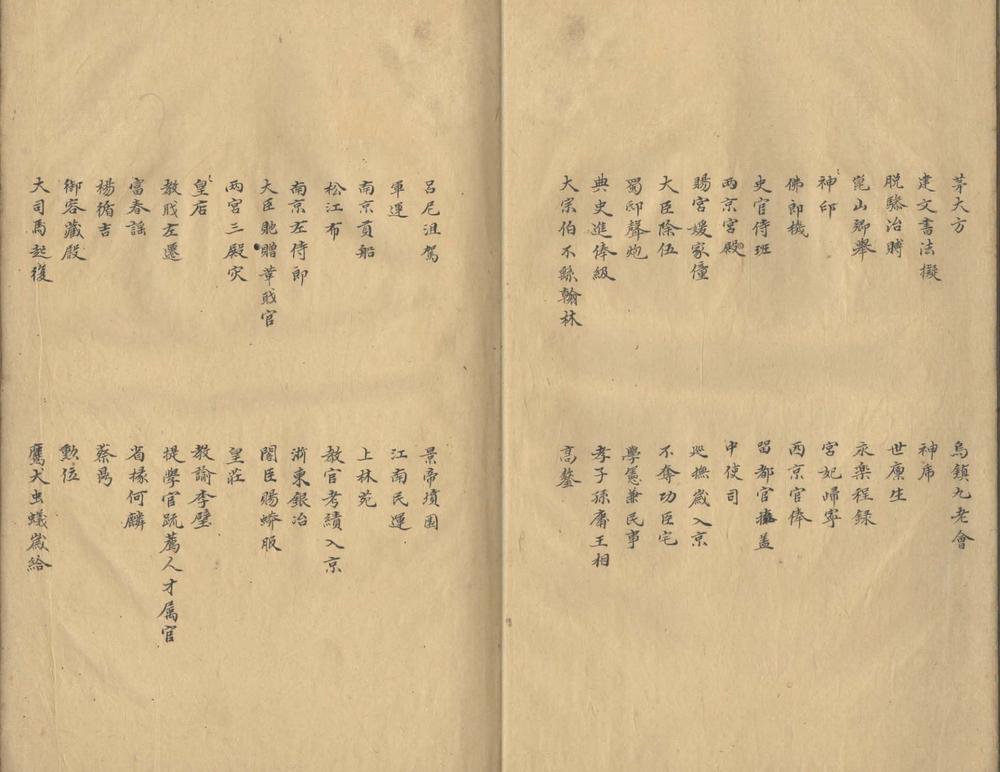 茅大方
烏鎮九老會
建文書法擬
神帋
脫騐治賻
世廩生
崑山鄉舉
永楽程録
神印
宮妃歸寧
佛郎機
西京官俸
史官侍班
留都官撎盖
兩京宮殿
中使司
賜宮媛家僮
巡撫嵗入京
大臣除伍
不奪功臣宅
蜀邸聲炮
學憲兼民事
典史進俸級
孝子孫膚王相
大宗伯不繇翰林
高鏊
呂尼沮駕
景帝墳園
軍運
江南民運
南京貢船
上林苑
松江布
教官考績入京
南京左侍郎
浙東銀冶
大臣貤贈葦戝官
閣臣賜蟒服
兩宮三殿灾
皇莊
皇店
教諭李璧
教戝左遷
提學官䟽薦人才属官
富春謡
省掾何麟
楊循吉
蔡昺
御容藏殿
勲位
大司馬起復
鷹犬虫蟻嵗給